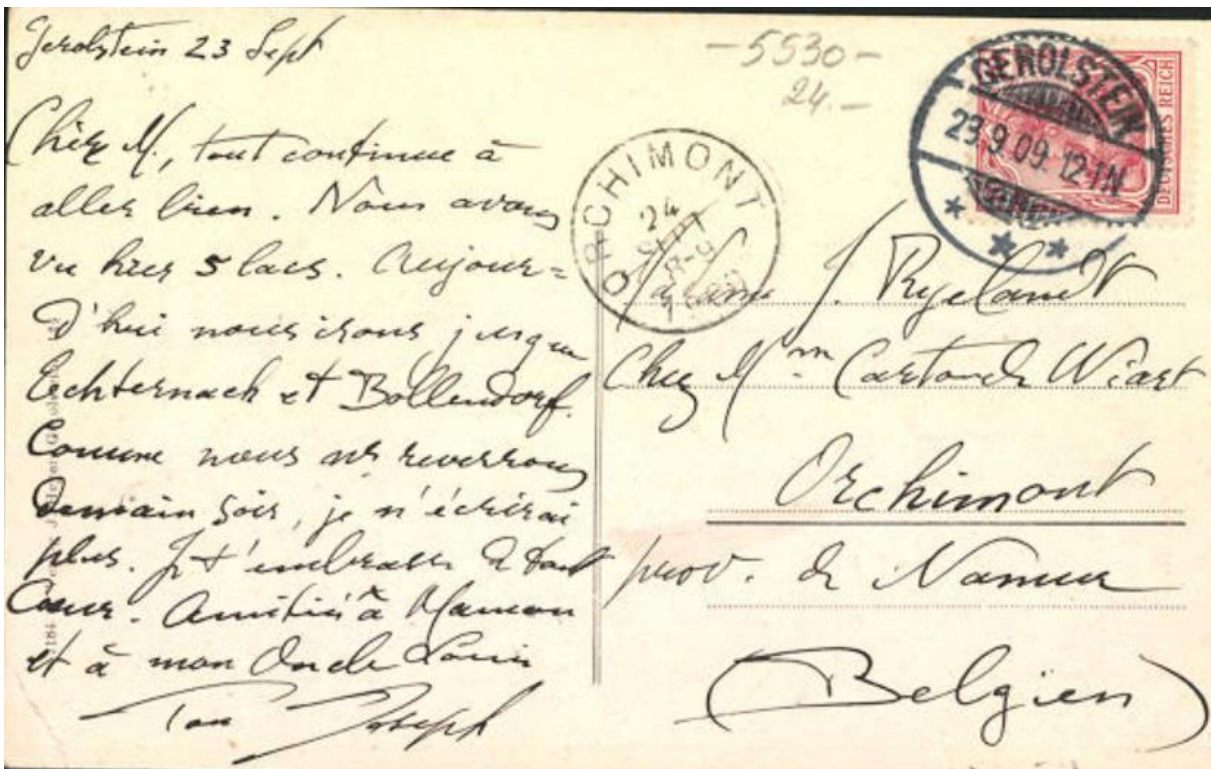 Gerolstein 23 Sept
Chère M., tout continue à
aller bien. Nous avons
vu hier 5 lacs. Aujour=
d'hui nous irons jusque
Echternach et Bollendorf.
Comme nous ns reverrons
demain soir, je n'écrirai
plus. Je t'embrasse de tout
Cœur. Amitiés à Maman
et à mon Oncle Louis
Ton Joseph
-5530-
24.-
ORCHIMONT
24
SEPT
8-9
1909
GEROLSTEIN
23.9.09.12-1N
DEUTSCHES REICH
Madame J. Ryelandt
Chez Mme Carton de Wiart
Orchimont
prov. de Namur
(Belgien)